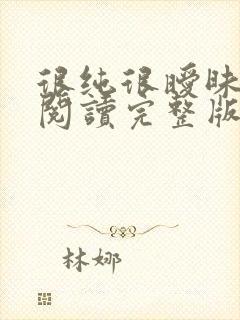 很純很曖昧
閱讀完整版
林娜